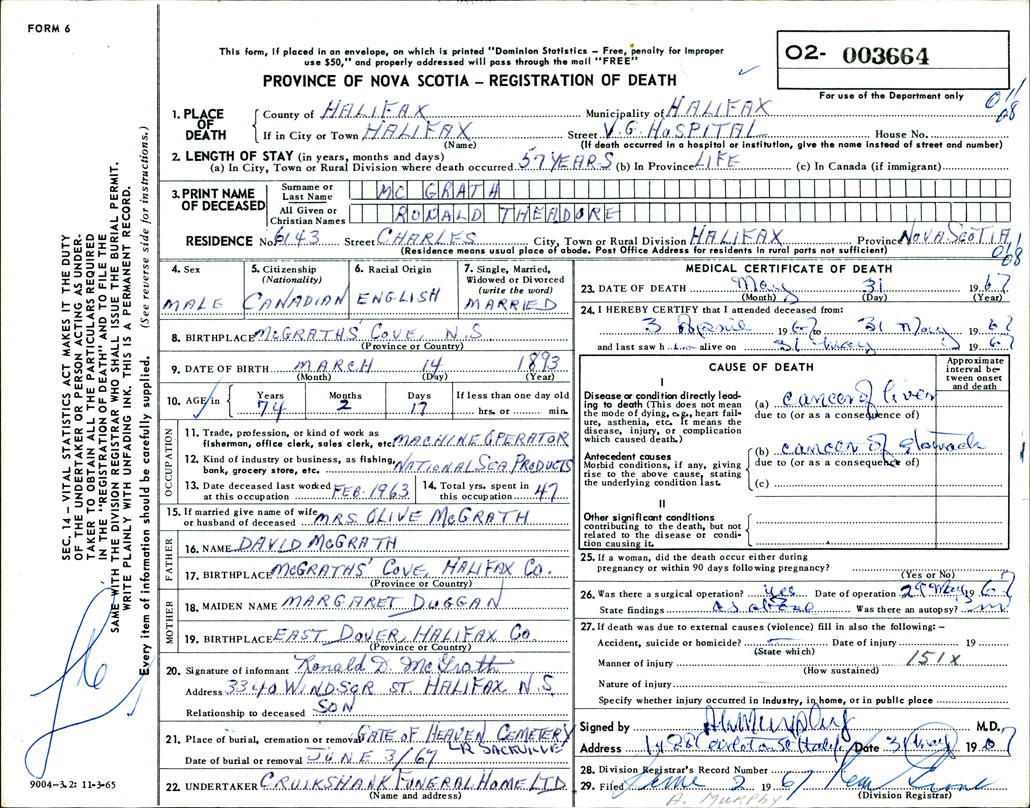 FORM 6
This form, if placed in an envelope, on which is printed "Dominion Statistics – Free, penalty for improper
use $50," and properly addressed will pass through the mail "FREE"
PROVINCE OF NOVA SCOTIA – REGISTRATION OF DEATH
O2- 003664
For use of the Department only
1. PLACE OF DEATH
County of HALIFAX Municipality of HALIFAX
If in City or Town HALIFAX Street V.G. HOSPITAL House No.
(Name) (If death occurred in a hospital or institution, give the name instead of street and number)
2. LENGTH OF STAY (in years, months and days)
(a) In City, Town or Rural Division where death occurred 57 YEARS (b) In Province LIFE (c) In Canada (if immigrant)
3. PRINT NAME OF DECEASED
Surname or Last Name MC GRATH
All Given or Christian Names RONALD THEADORE
RESIDENCE No. 6143 Street CHARLES City, Town or Rural Division HALIFAX Province NOVA SCOTIA
(Residence means usual place of abode. Post Office Address for residents in rural parts not sufficient)
4. Sex MALE
5. Citizenship (Nationality) CANADIAN
6. Racial Origin ENGLISH
7. Single, Married, Widowed or Divorced (write the word) MARRIED
8. BIRTHPLACE McGRATHS' COVE, N.S
(Province or Country)
9. DATE OF BIRTH MARCH 14 1893
(Month) (Day) (Year)
10. AGE in Years 74 Months 2 Days 17 If less than one day old hrs. or min.
OCCUPATION
11. Trade, profession, or kind of work as fisherman, office clerk, sales clerk, etc. MACHINE OPERATOR
12. Kind of industry or business, as fishing, bank, grocery store, etc. NATIONAL SEA PRODUCTS
13. Date deceased last worked at this occupation FEB. 1963
14. Total yrs. spent in this occupation 47
15. If married give name of wife or husband of deceased MRS OLIVE McGRATH
FATHER
16. NAME DAVID McGRATH
17. BIRTHPLACE McGRATHS' COVE, HALIFAX CO.
(Province or Country)
MOTHER
18. MAIDEN NAME MARGARET DUGGAN
19. BIRTHPLACE EAST DOVER, HALIFAX CO.
(Province or Country)
20. Signature of informant Ronald D. McGrath
Address 3340 WINDSOR ST. HALIFAX N.S
Relationship to deceased SON
21. Place of burial, cremation or removal GATE OF HEAVEN CEMETERY
LR SACKVILLE
Date of burial or removal JUNE 3/67
22. UNDERTAKER CRUIKSHANK FUNERAL HOME LTD
(Name and address)
MEDICAL CERTIFICATE OF DEATH
23. DATE OF DEATH May 31 1967
(Month) (Day) (Year)
24. I HEREBY CERTIFY that I attended deceased from:
3 April 1967 to 31 May 1967
and last saw h im alive on 31 May 1967
CAUSE OF DEATH
Approximate interval between onset and death
I
Disease or condition directly leading to death (This does not mean the mode of dying, e.g., heart failure, asthenia, etc. It means the disease, injury, or complication which caused death.)
(a) cancer of liver
due to (or as a consequence of)
Antecedent causes
Morbid conditions, if any, giving rise to the above cause, stating the underlying condition last.
(b) cancer of stomach
due to (or as a consequence of)
(c)
II
Other significant conditions contributing to the death, but not related to the disease or condition causing it.
25. If a woman, did the death occur either during pregnancy or within 90 days following pregnancy?
(Yes or No)
26. Was there a surgical operation? yes Date of operation 29 May 1967
State findings as above Was there an autopsy?
27. If death was due to external causes (violence) fill in also the following: –
Accident, suicide or homicide? Date of injury 19
(State which)
Manner of injury 151X
(How sustained)
Nature of injury
Specify whether injury occurred in Industry, in home, or in public place
Signed by M.D.
Address Date 31 May 1967
28. Division Registrar's Record Number
29. Filed June 2 1967
(Division Registrar)
A. MURPHY
SEC. 14 – VITAL STATISTICS ACT MAKES IT THE DUTY
OF THE UNDERTAKER OR PERSON ACTING AS UNDER-
TAKER TO OBTAIN ALL THE PARTICULARS REQUIRED
IN THE "REGISTRATION OF DEATH" AND TO FILE THE
SAME WITH THE DIVISION REGISTRAR WHO SHALL ISSUE THE BURIAL PERMIT.
WRITE PLAINLY WITH UNFADING INK. THIS IS A PERMANENT RECORD.
Every item of information should be carefully supplied. (See reverse side for instructions.)
9004-3.2: 11-3-65